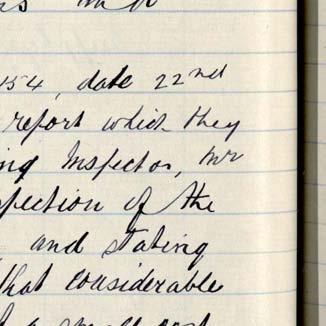 154, date 22nd
report which they
ing Inspector, Mr
spection of the
and stating
that considerable
a small cost